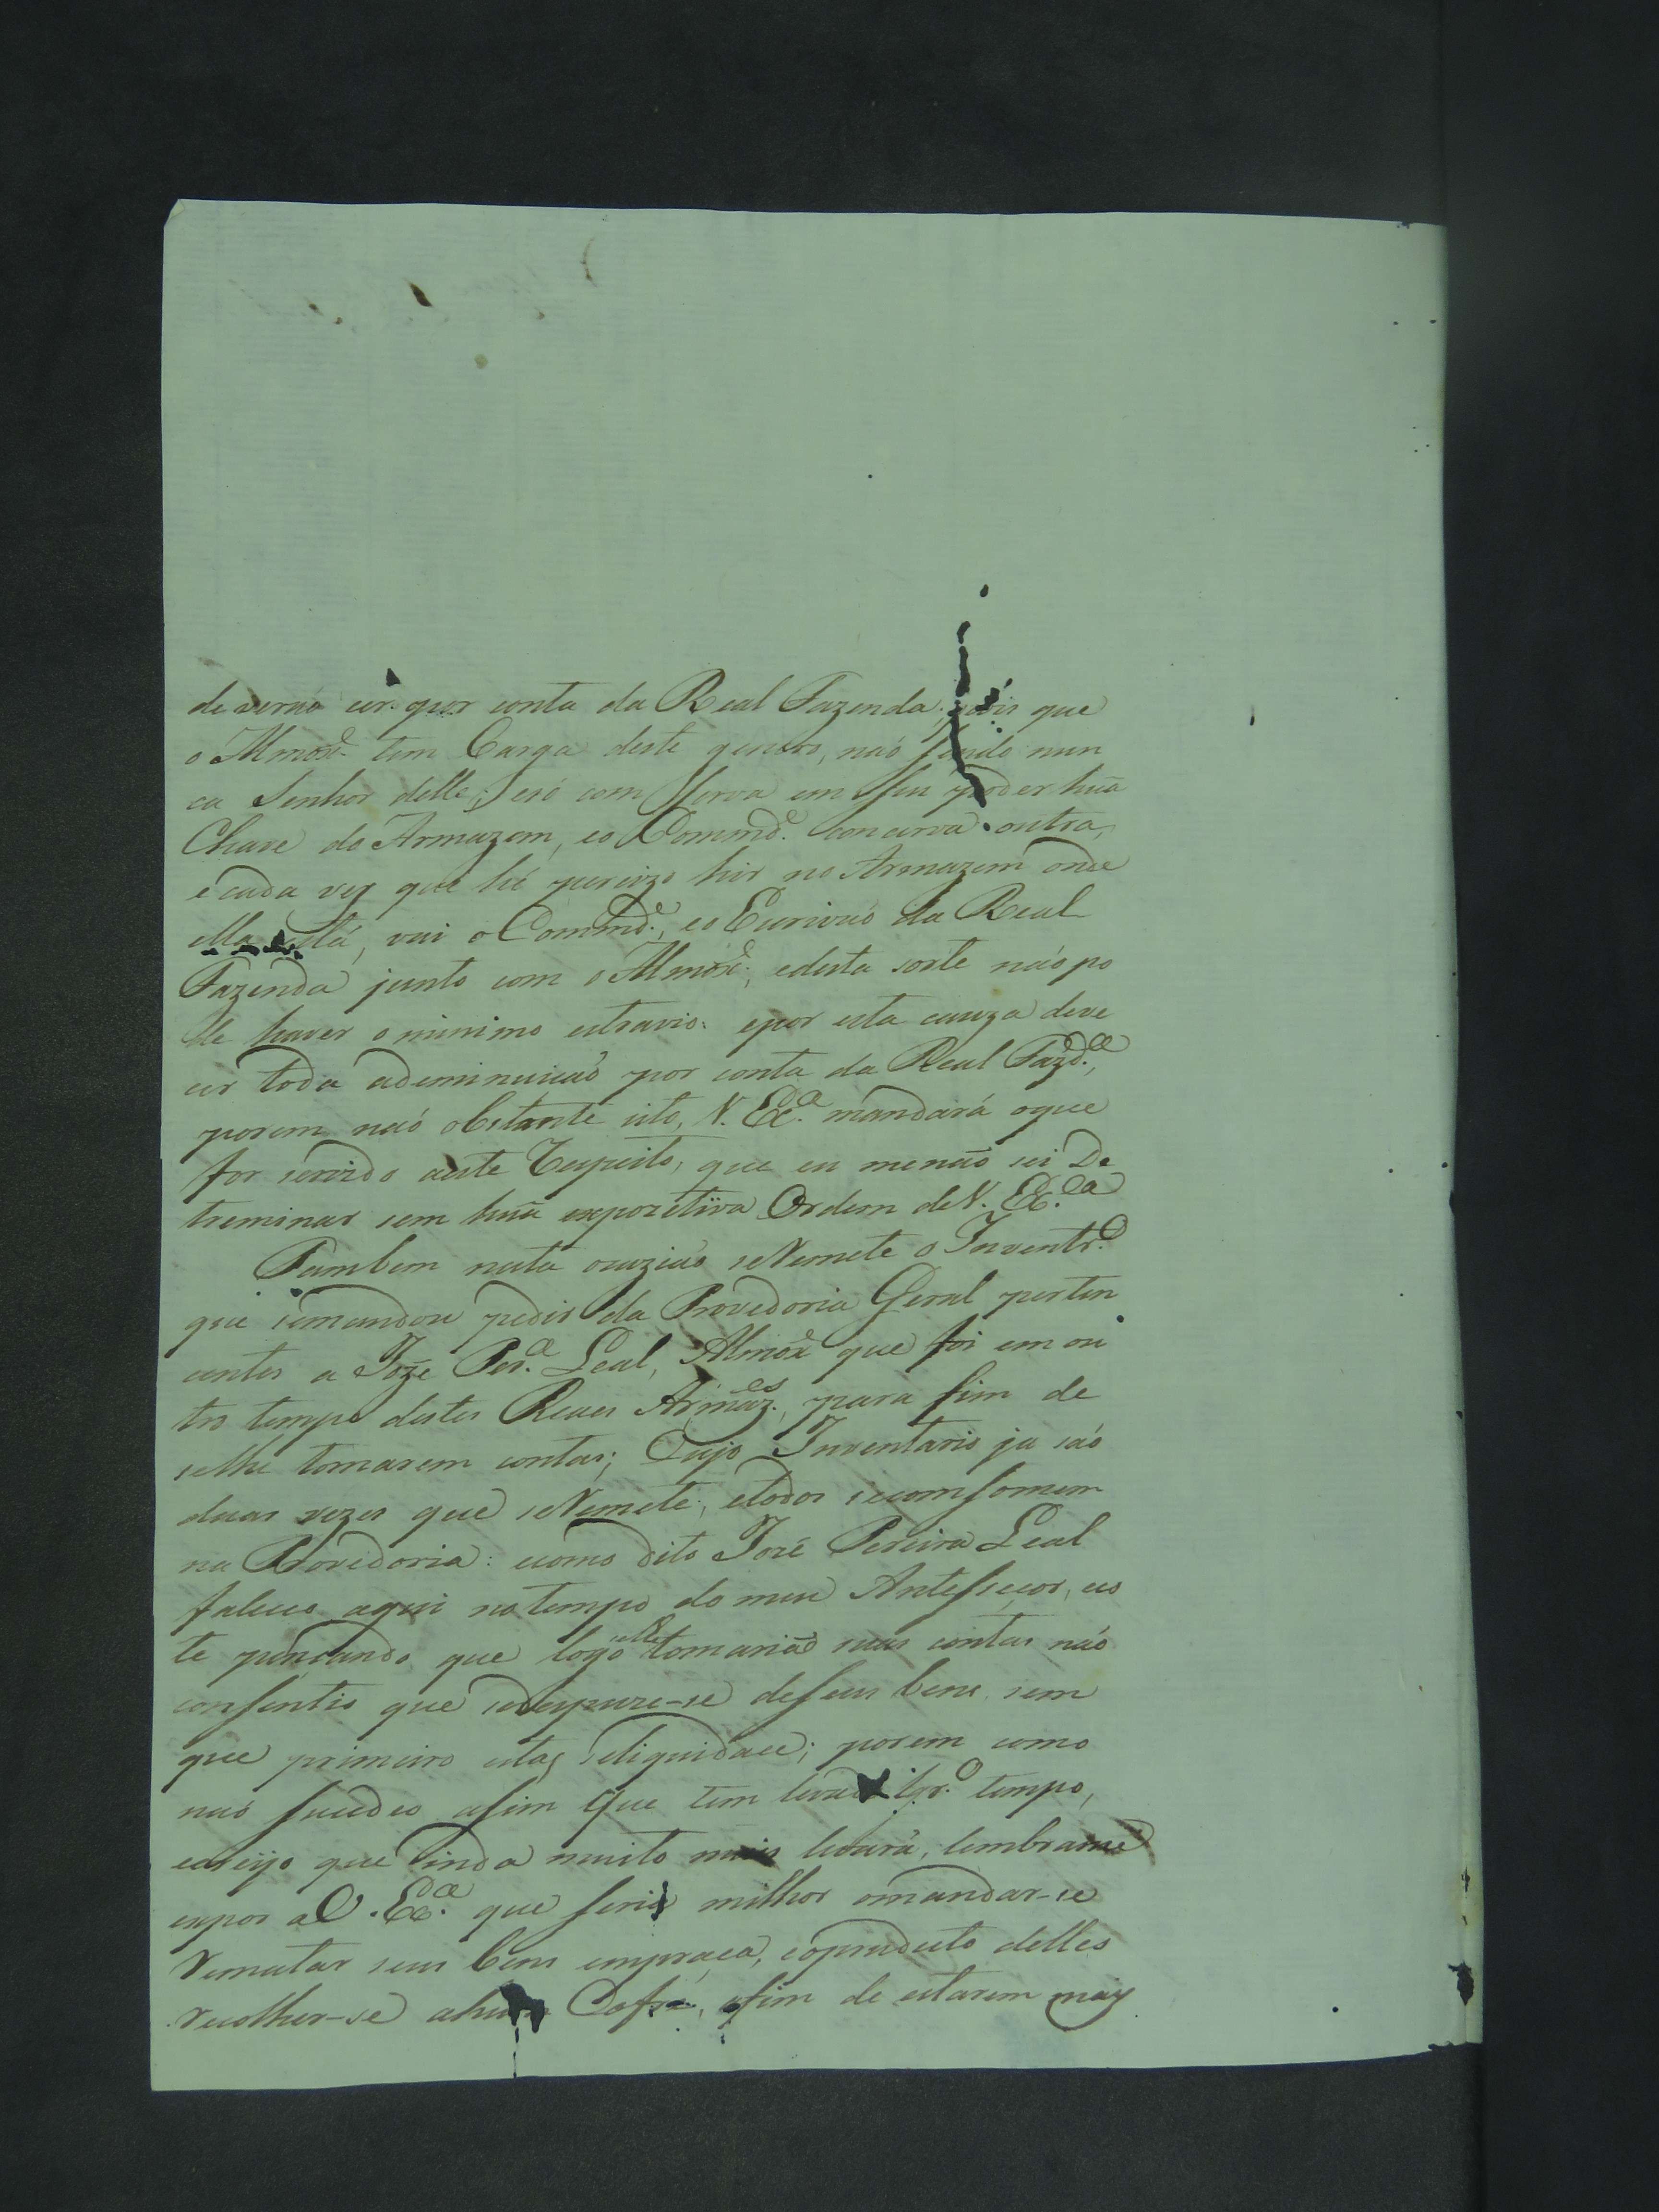 de verão cer por conta da Real Fazenda; pois que
o Almoxe. tem Carga deste genero, não sendo nun
ca Senhor délle; e só com sserva em sseu poder huã
Chave do Armazem, eo Commde. concerva outra,
e cada vez que hé perciozo hir no Armazem onde
ella está, vai o Commde., eo Escrivaõ da Real
Fazenda junto com o Almoxe., edesta sorte não po
de haver o minimo estravio: epor esta cauza deve
cer toda ademinuicaõ por conta da Real Fazda.,
porem não obstante isto, V. Exa. mandará oque
for servido aeste Respeito, que eu menão sei De
treminar sem huã expozetiva Ordem de V. Exca.
Tambem nesta ocazião se Remete o Inventro.
que semandou pedir da Provedoria Geral perten
centes a Joze Pera. Leal, Almoxe que foi em ou
tro tempo destes Reaes Armazes., para fim de
selhe tomarem contas; Cujo Inventario ja são
duas vezes que se Remete, etodos secomsomem
na Provedoria: ecomo dito José Pereira Leal
faleceo aqui no tempo do meu Antessecor, es
te pencando que logo selhe tomariaõ suas contas não
consentio que sedespuze-se deseus bens, sem
que primeiro estas seliquidace; porem como
não sucedeo asim que tem levado lgo. tempo,
evejo que inda muito mais levará, lembrame
expor a V. Exca. que seria milhor omandar-se
Rematar seus bens empraça, eoproducto delles
recolher-se ahum Cofre, afim de estarem mais